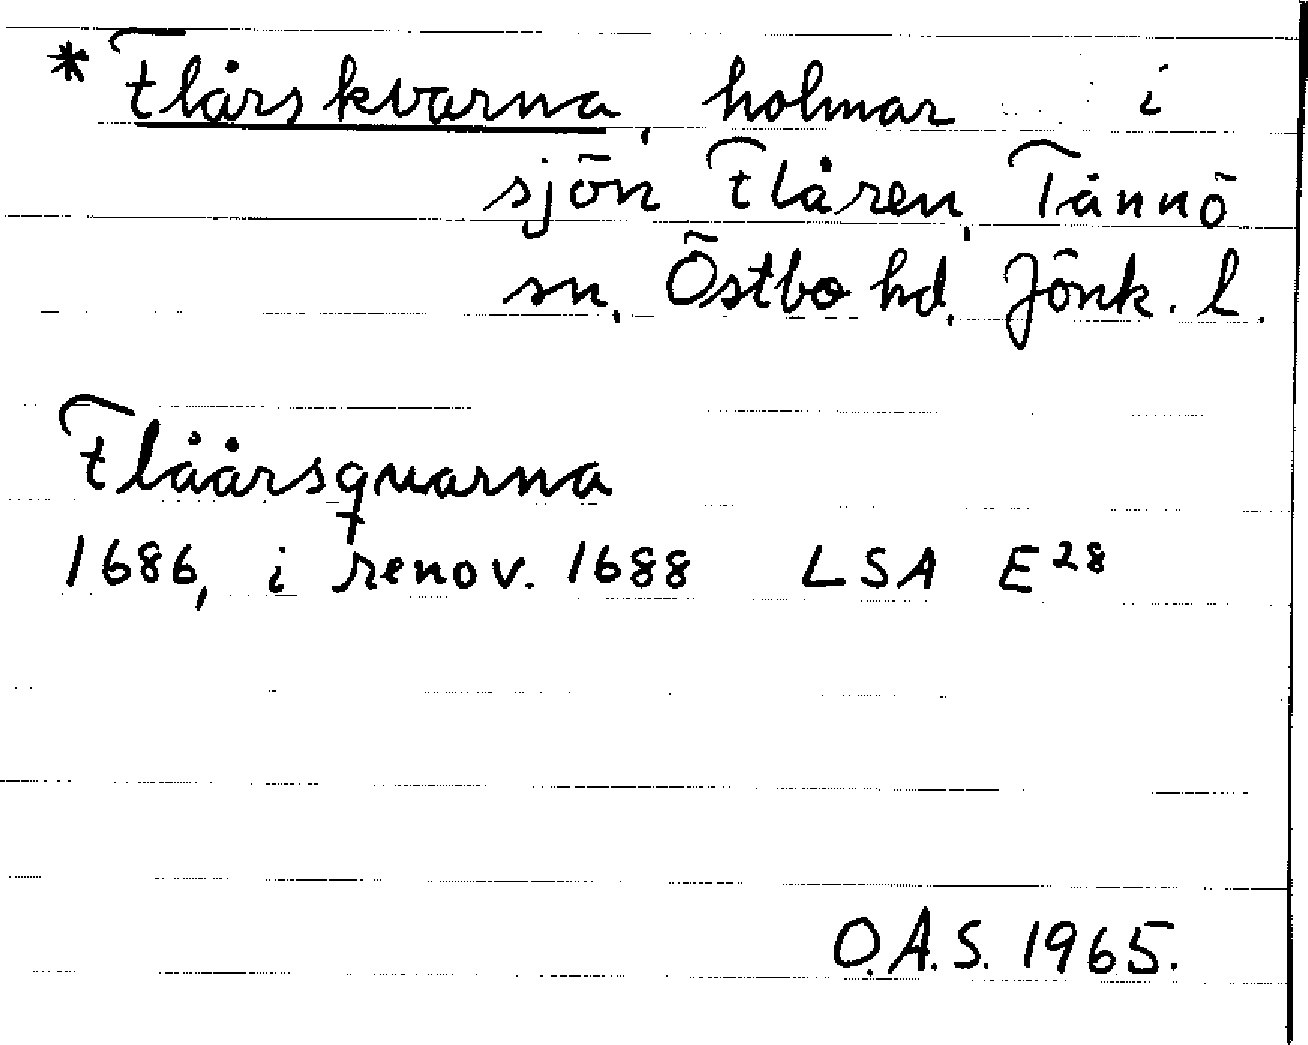 * Flårskvarna, holmar i
sjön Flåren, Tånnö
sn, Östbo hd, Jönk. l.
Flåårsquarna
1686, i renov. 1688 LSA E28
O.A.S. 1965.